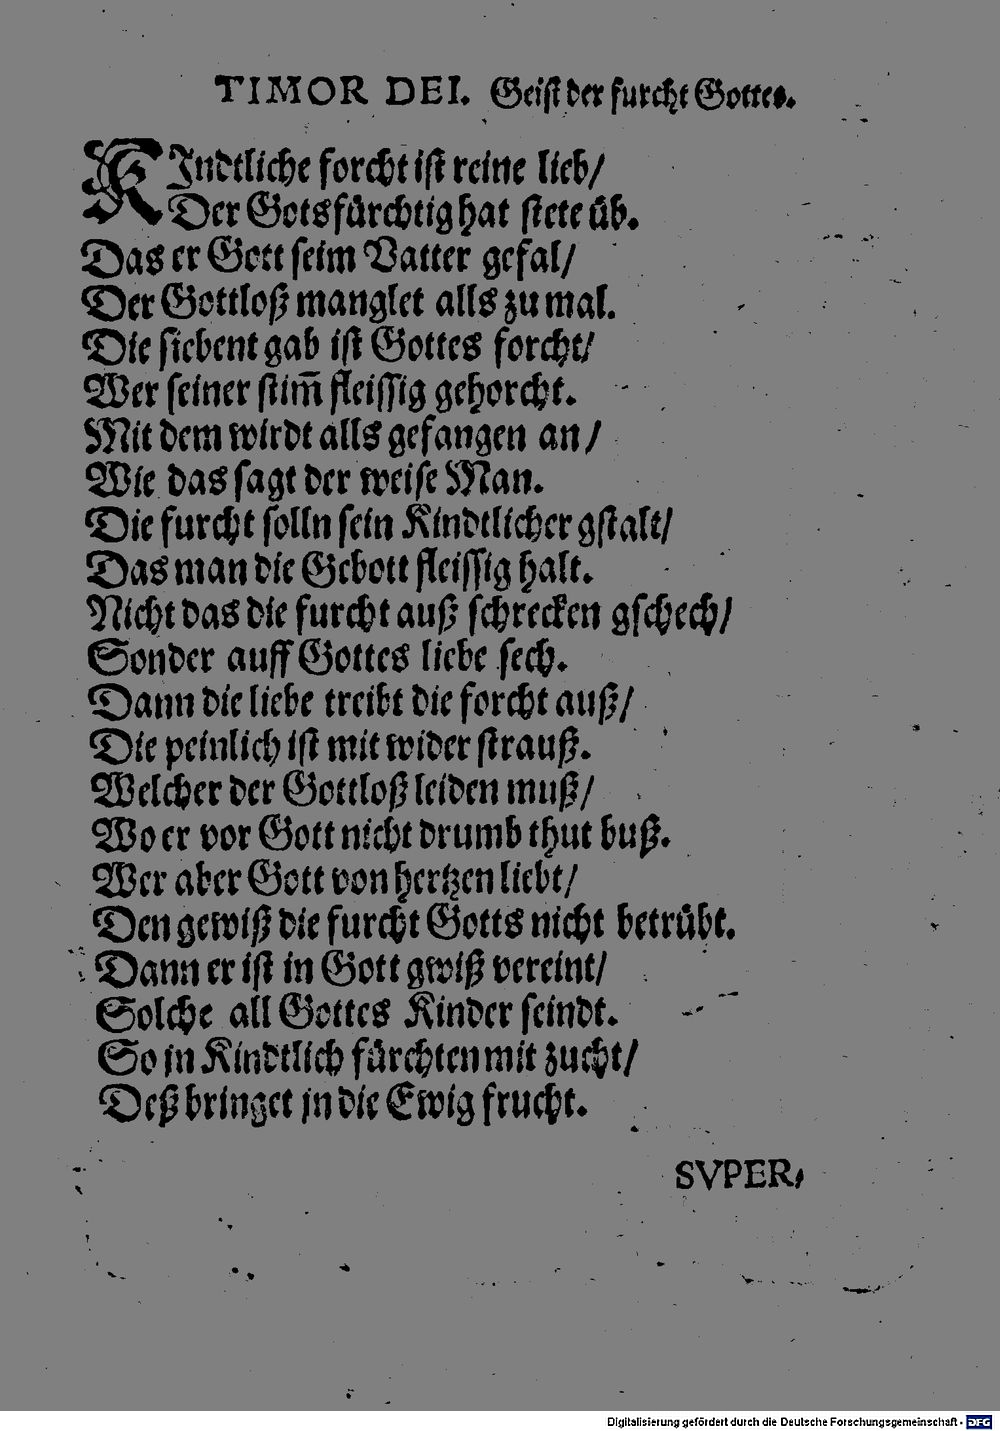 TIMOR DEI. Geist der furcht Gottes.
KIndtliche forcht ist reine lieb/
Der Gotsfürchtig hat stete üb.
Das er Gott seim Vatter gefal/
Der Gottloß manglet alls zu mal.
Die siebent gab ist Gottes forcht/
Wer seiner stim̄ fleissig gehorcht.
Mit dem wirdt alls gefangen an/
Wie das sagt der weise Man.
Die furcht solln sein Kindtlicher gstalt/
Das man die Gebott fleissig halt.
Nicht das die furcht auß schrecken gschech/
Sonder auff Gottes liebe sech.
Dann die liebe treibt die forcht auß/
Die peinlich ist mit wider strauß.
Welcher der Gottloß leiden muß/
Wo er vor Gott nicht drumb thut buß.
Wer aber Gott von hertzen liebt/
Den gewiß die furcht Gotts nicht betrübt.
Dann er ist in Gott gwiß vereint/
Solche all Gottes Kinder seindt.
So jn Kindtlich fürchten mit zucht/
Deß bringet jn die Ewig frucht.
SVPER,
Digitalisierung gefördert durch die Deutsche Forschungsgemeinschaft - DFG